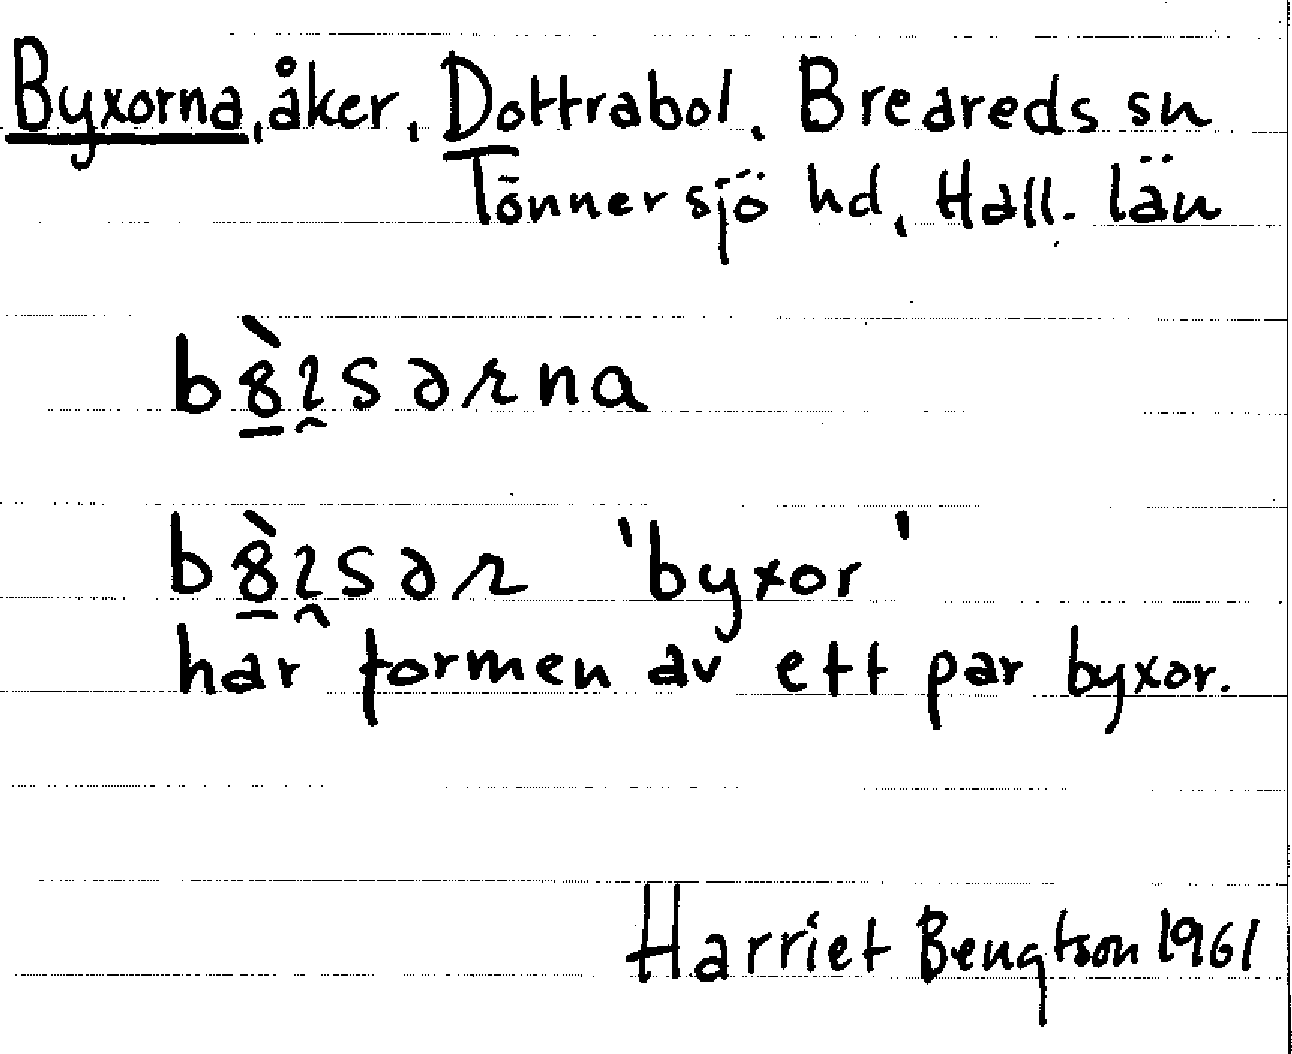 Byxorna, åker, Dottrabol, Breareds sn
Tönnersjö hd, Hall. län
bȣ̱̀ɩ̯sərna
bȣ̱̀ɩ̯sər 'byxor'
har formen av ett par byxor.
Harriet Bengtson 1961